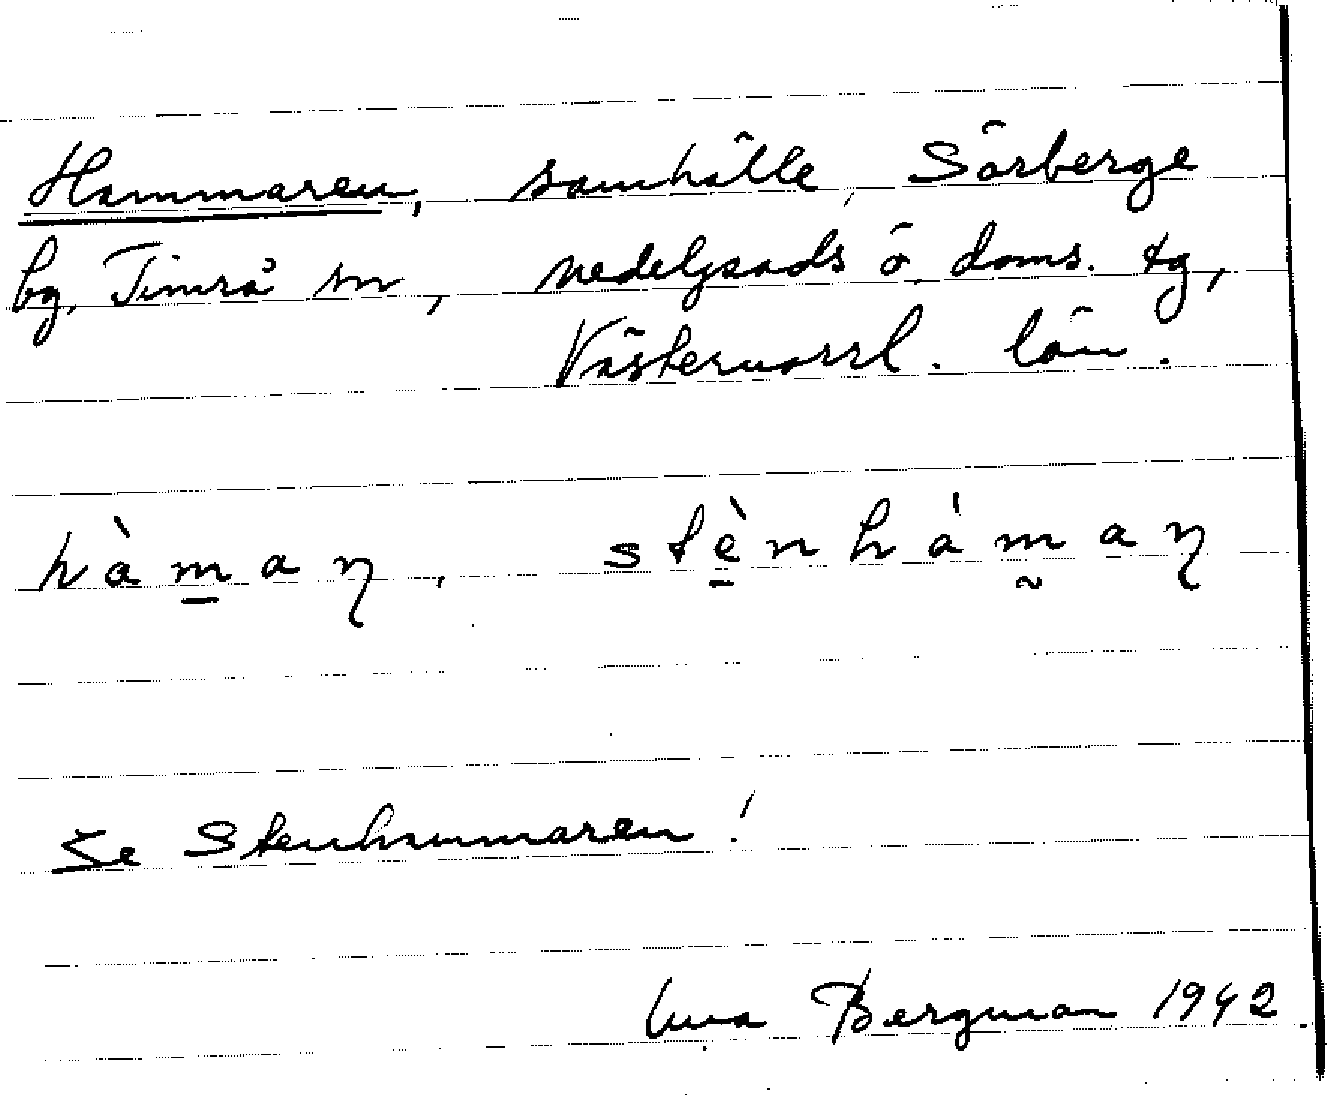 Hammaren, samhälle, Sörberge
by, Timrå sn, Medelpads ö. doms. tg,
Västernorrl. län.
hàm̲aŋ, stè̲nhám̰aŋ
Se Stenhammaren!
Bergman 1942.